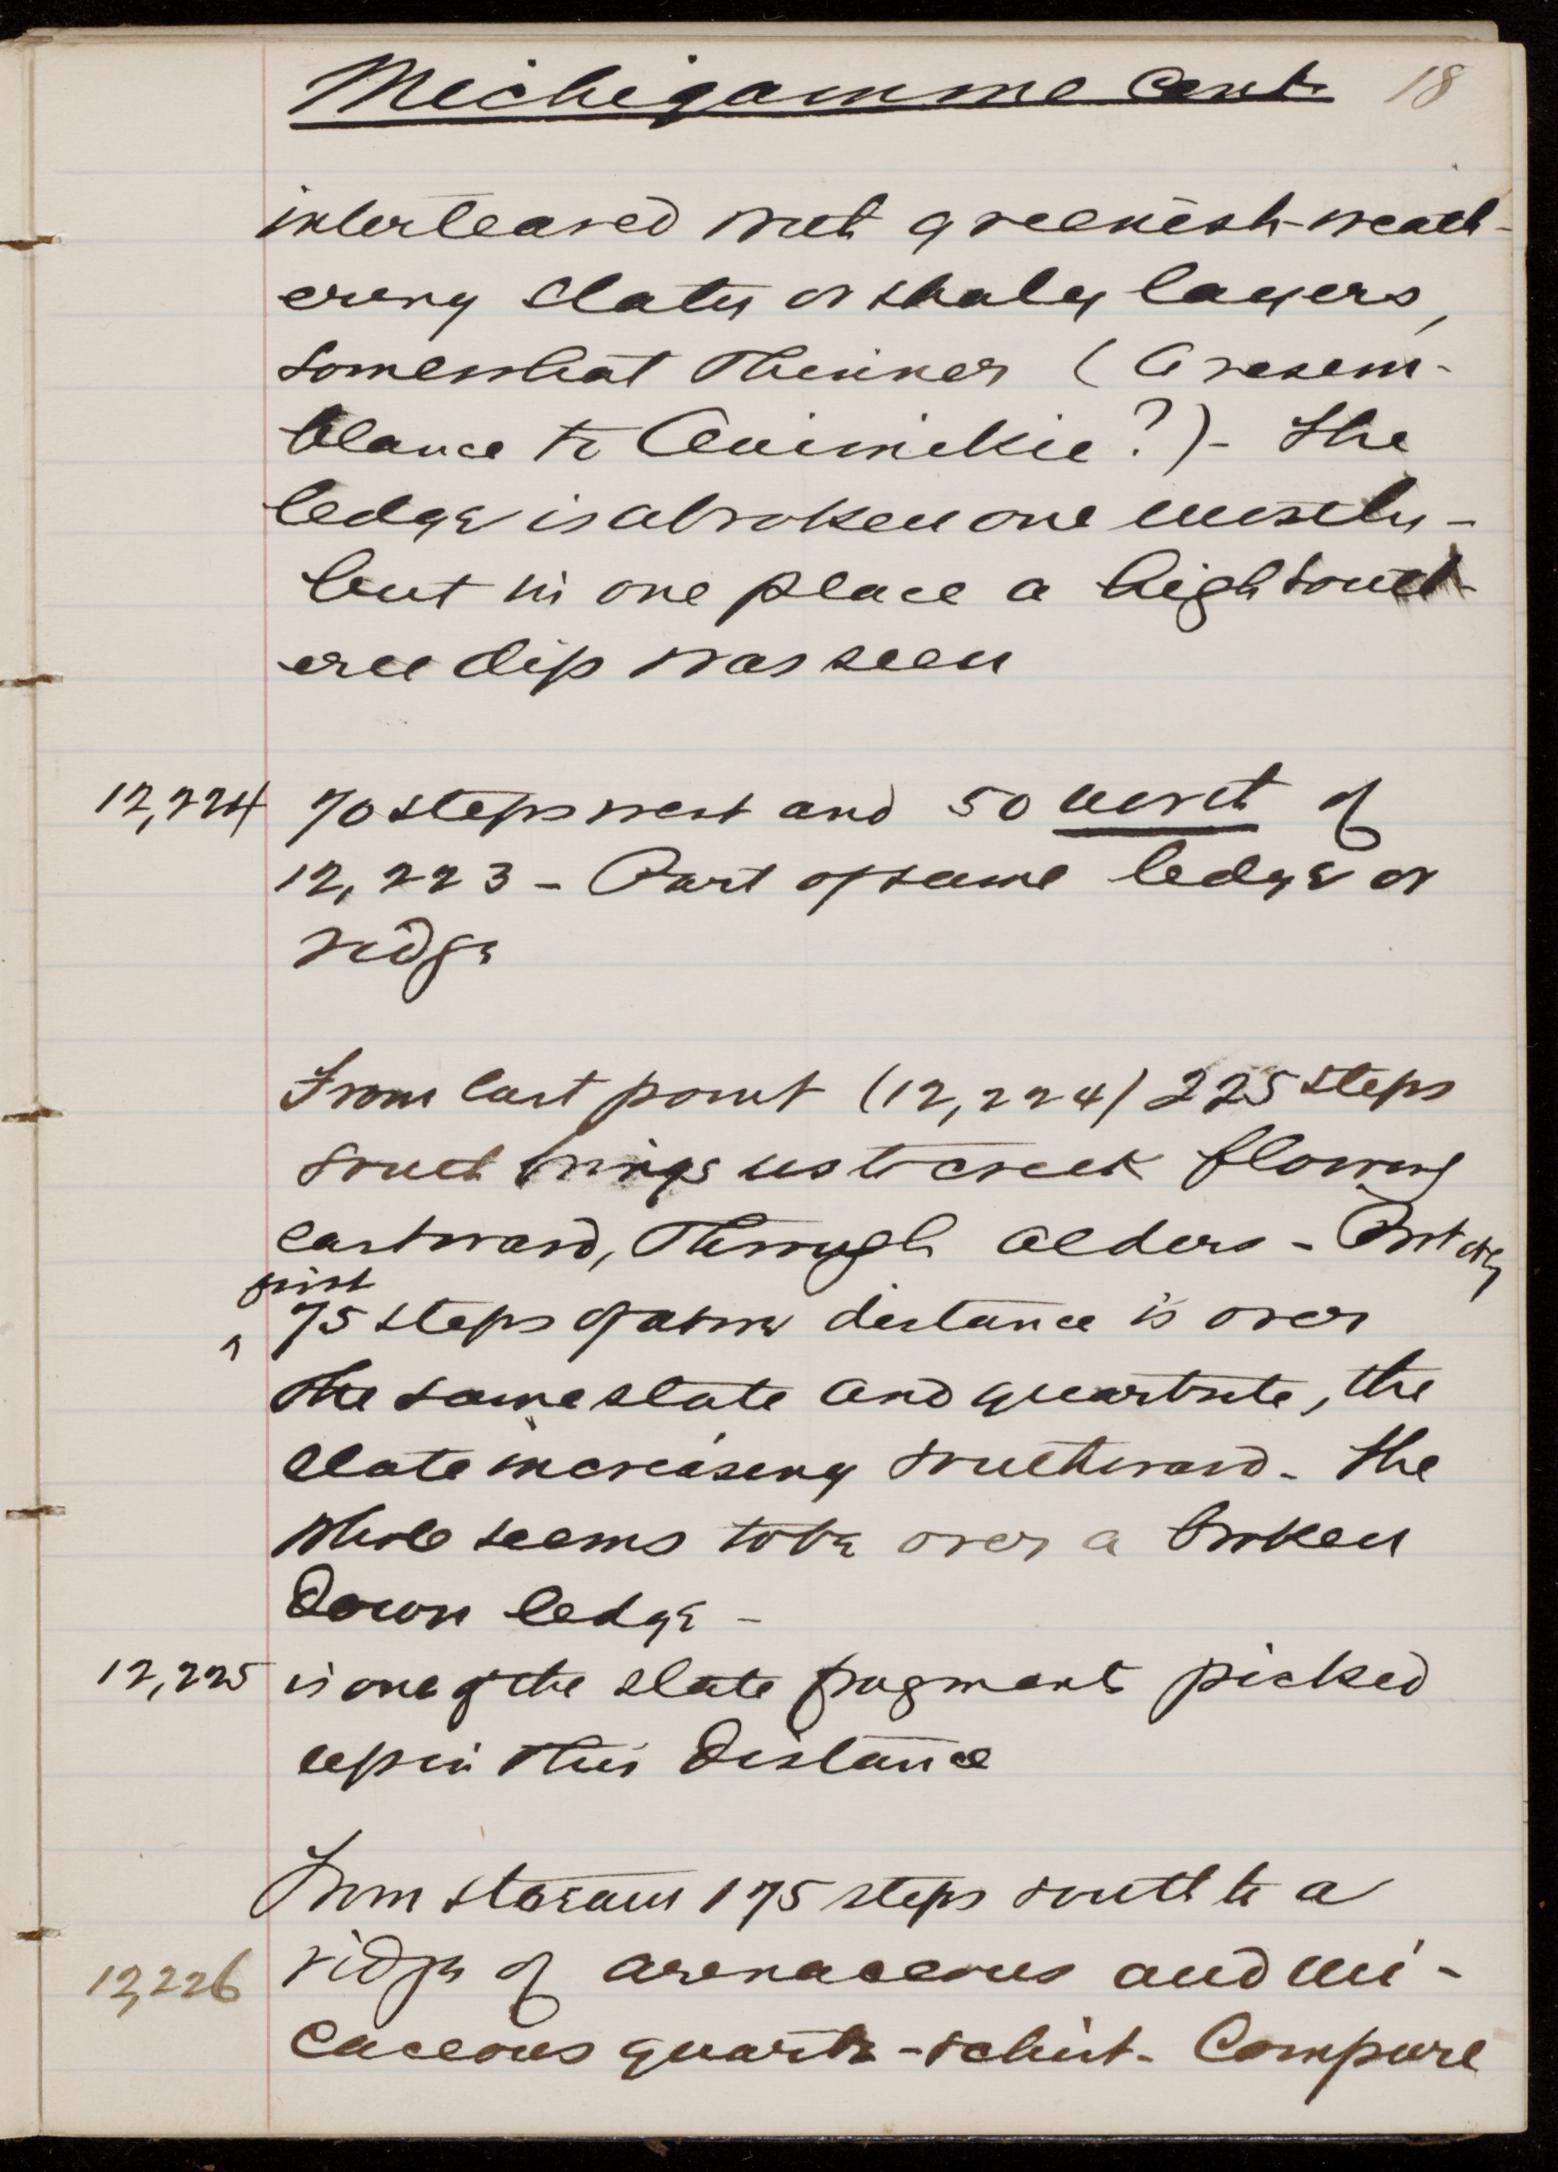 Michigamme Cont. 18
interleaved with greenish-weath-
ering slaty or shaly layers,
somewhat thinner (A resem-
blance to Animikie?)- The
ledge is a broken one mostly-
but in one place a high south-
ern dip was seen
12,224 70 steps west and 50 north of
12,223 - Part of same ledge or
ridge
From last point (12,224) 225 steps
south brings us to creek flowing
eastward, through alders -
first
75 steps of above distance is over
the same slate and quartzite, the
slate increasing southward - The
whole seems to be over a broken
down ledge -
12,225 is one of the slate fragments picked
up in this distance
From stream 175 steps south to a
12,226 ridge of arenaceous and mi-
caceous quartz-schist - Compare